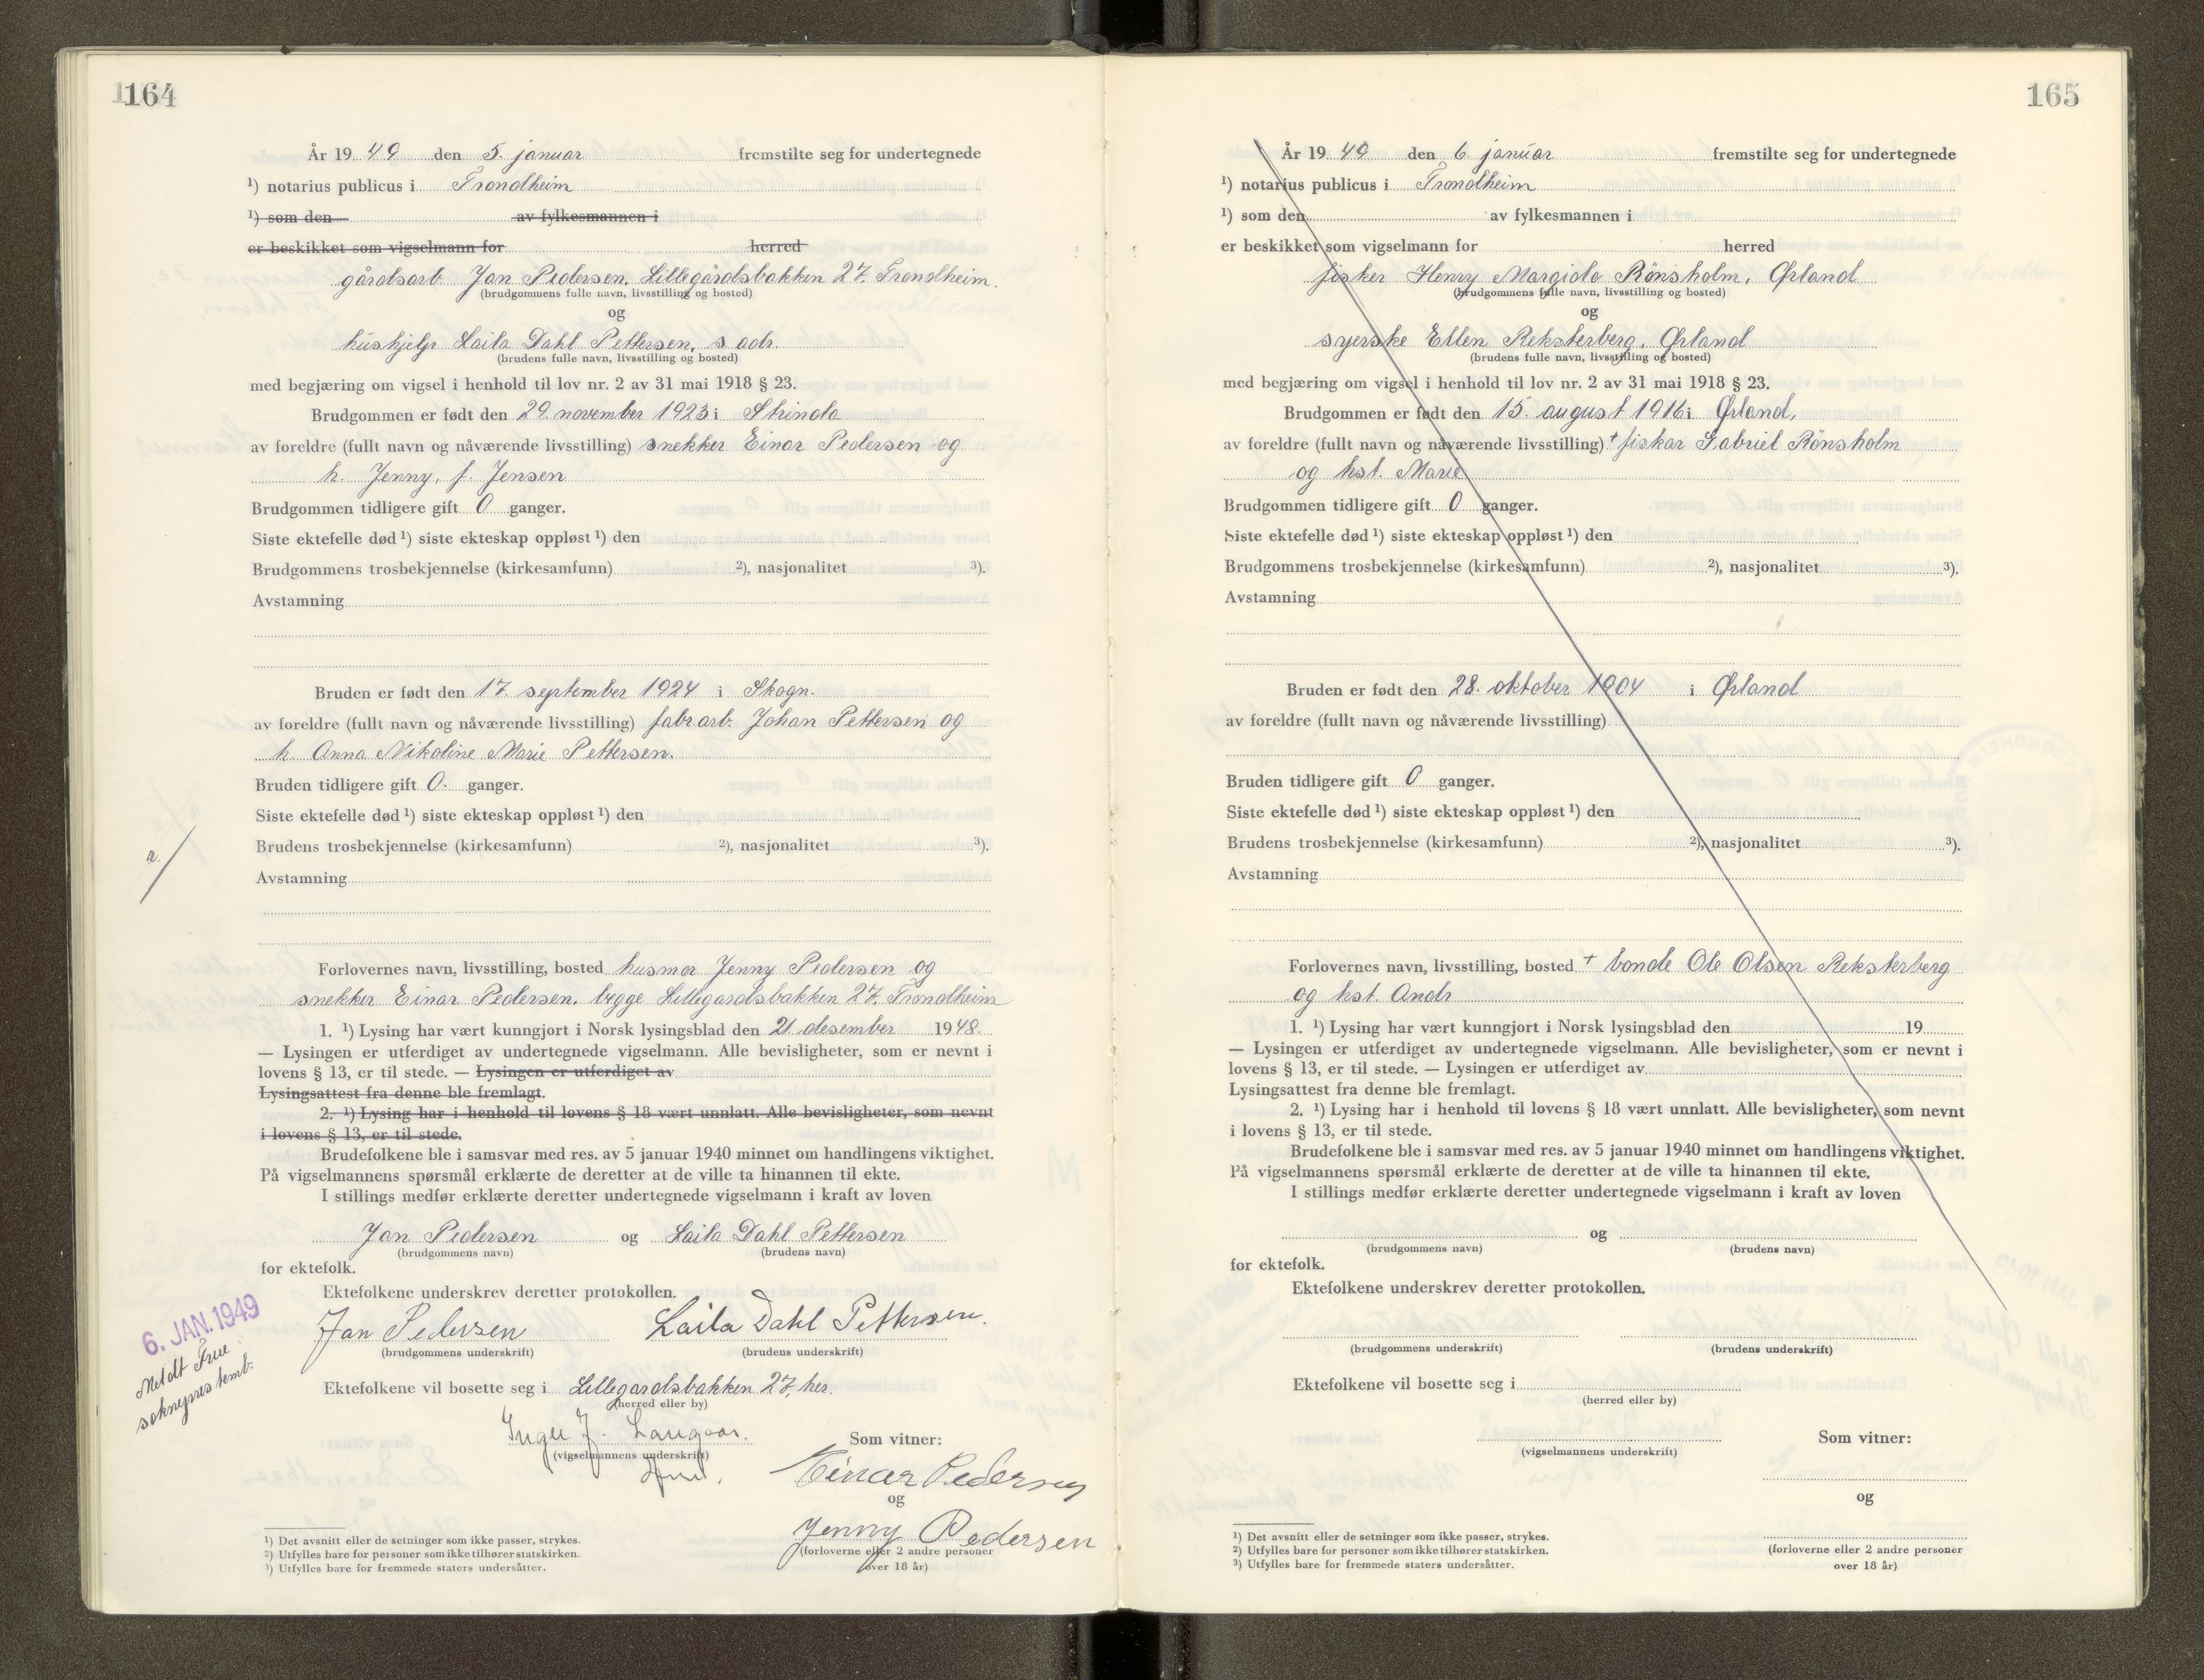 164
År 19 49 den 5. januar fremstilte seg for undertegnede
¹) notarius publicus i Trondheim
¹) som den av fylkesmannen i
er beskikket som vigselmann for herred
gårdsarb. Jan Pedersen, Lillegårdsbakken 27, Trondheim.
(brudgommens fulle navn, livsstilling og bosted)
og
hushjelp Laila Dahl Pettersen, s. adr.
(brudens fulle navn, livsstilling og bosted)
med begjæring om vigsel i henhold til lov nr. 2 av 31 mai 1918 § 23.
Brudgommen er født den 29. november 1923 i Strinda
av foreldre (fullt navn og nåværende livsstilling) snekker Einar Pedersen og
h. Jenny, f. Jensen
Brudgommen tidligere gift 0 ganger.
Siste ektefelle død ¹) siste ekteskap oppløst ¹) den
Brudgommens trosbekjennelse (kirkesamfunn) ²), nasjonalitet ³).
Avstamning
Bruden er født den 17. september 1924 i Skogn.
av foreldre (fullt navn og nåværende livsstilling) fabr.arb. Johan Pettersen og
h. Anna Nikoline Marie Pettersen.
Bruden tidligere gift 0. ganger.
Siste ektefelle død ¹) siste ekteskap oppløst ¹) den
Brudens trosbekjennelse (kirkesamfunn) ²), nasjonalitet ³).
Avstamning
Forlovernes navn, livsstilling, bosted husmor Jenny Pedersen og
snekker Einar Pedersen, begge Lillegardsbakken 27, Trondheim
1. ¹) Lysing har vært kunngjort i Norsk lysingsblad den 21 desember 1948.
— Lysingen er utferdiget av undertegnede vigselmann. Alle bevisligheter, som er nevnt i
lovens § 13, er til stede. — Lysingen er utferdiget av
Lysingsattest fra denne ble fremlagt.
2. ¹) Lysing har i henhold til lovens § 18 vært unnlatt. Alle bevisligheter, som nevnt
i lovens § 13, er til stede.
Brudefolkene ble i samsvar med res. av 5 januar 1940 minnet om handlingens viktighet.
På vigselmannens spørsmål erklærte de deretter at de ville ta hinannen til ekte.
I stillings medfør erklærte deretter undertegnede vigselmann i kraft av loven
Jan Pedersen og Laila Dahl Pettersen
(brudgommens navn) (brudens navn)
for ektefolk.
Ektefolkene underskrev deretter protokollen.
Jan Pedersen Laila Dahl Pettersen.
(brudgommens underskrift) (brudens underskrift)
6. JAN. 1949
Meldt Frue
Ektefolkene vil bosette seg i Lillegardsbakken 27, her.
(herred eller by)
Inger J. Langaas.
(vigselmannens underskrift)
Som vitner:
Einar Pedersen
og
Jenny Pedersen
(forloverne eller 2 andre personer
over 18 år)
¹) Det avsnitt eller de setninger som ikke passer, strykes.
²) Utfylles bare for personer som ikke tilhører statskirken.
³) Utfylles bare for fremmede staters undersåtter.
165
År 19 49 den 6. januar fremstilte seg for undertegnede
¹) notarius publicus i Trondheim
¹) som den av fylkesmannen i
er beskikket som vigselmann for herred
fisker Henry Margido Rönsholm, Ørland
(brudgommens fulle navn, livsstilling og bosted)
og
syerske Ellen Reksterberg, Ørland
(brudens fulle navn, livsstilling og bosted)
med begjæring om vigsel i henhold til lov nr. 2 av 31 mai 1918 § 23.
Brudgommen er født den 15. august 1916 i Ørland,
av foreldre (fullt navn og nåværende livsstilling) + fiskar Gabriel Rönsholm
og hst. Marie
Brudgommen tidligere gift 0 ganger.
Siste ektefelle død ¹) siste ekteskap oppløst ¹) den
Brudgommens trosbekjennelse (kirkesamfunn) ²), nasjonalitet ³).
Avstamning
Bruden er født den 28. oktober 1904 i Ørland
av foreldre (fullt navn og nåværende livsstilling)
Bruden tidligere gift 0 ganger.
Siste ektefelle død ¹) siste ekteskap oppløst ¹) den
Brudens trosbekjennelse (kirkesamfunn) ²), nasjonalitet ³).
Avstamning
Forlovernes navn, livsstilling, bosted + bonde Ole Olsen Reksterberg
og hst. Andr
1. ¹) Lysing har vært kunngjort i Norsk lysingsblad den 19
— Lysingen er utferdiget av undertegnede vigselmann. Alle bevisligheter, som er nevnt i
lovens § 13, er til stede. — Lysingen er utferdiget av
Lysingsattest fra denne ble fremlagt.
2. ¹) Lysing har i henhold til lovens § 18 vært unnlatt. Alle bevisligheter, som nevnt
i lovens § 13, er til stede.
Brudefolkene ble i samsvar med res. av 5 januar 1940 minnet om handlingens viktighet.
På vigselmannens spørsmål erklærte de deretter at de ville ta hinannen til ekte.
I stillings medfør erklærte deretter undertegnede vigselmann i kraft av loven
og
(brudgommens navn) (brudens navn)
for ektefolk.
Ektefolkene underskrev deretter protokollen.
(brudgommens underskrift) (brudens underskrift)
Ektefolkene vil bosette seg i
(herred eller by)
(vigselmannens underskrift)
Som vitner:
og
(forloverne eller 2 andre personer
over 18 år)
¹) Det avsnitt eller de setninger som ikke passer, strykes.
²) Utfylles bare for personer som ikke tilhører statskirken.
³) Utfylles bare for fremmede staters undersåtter.